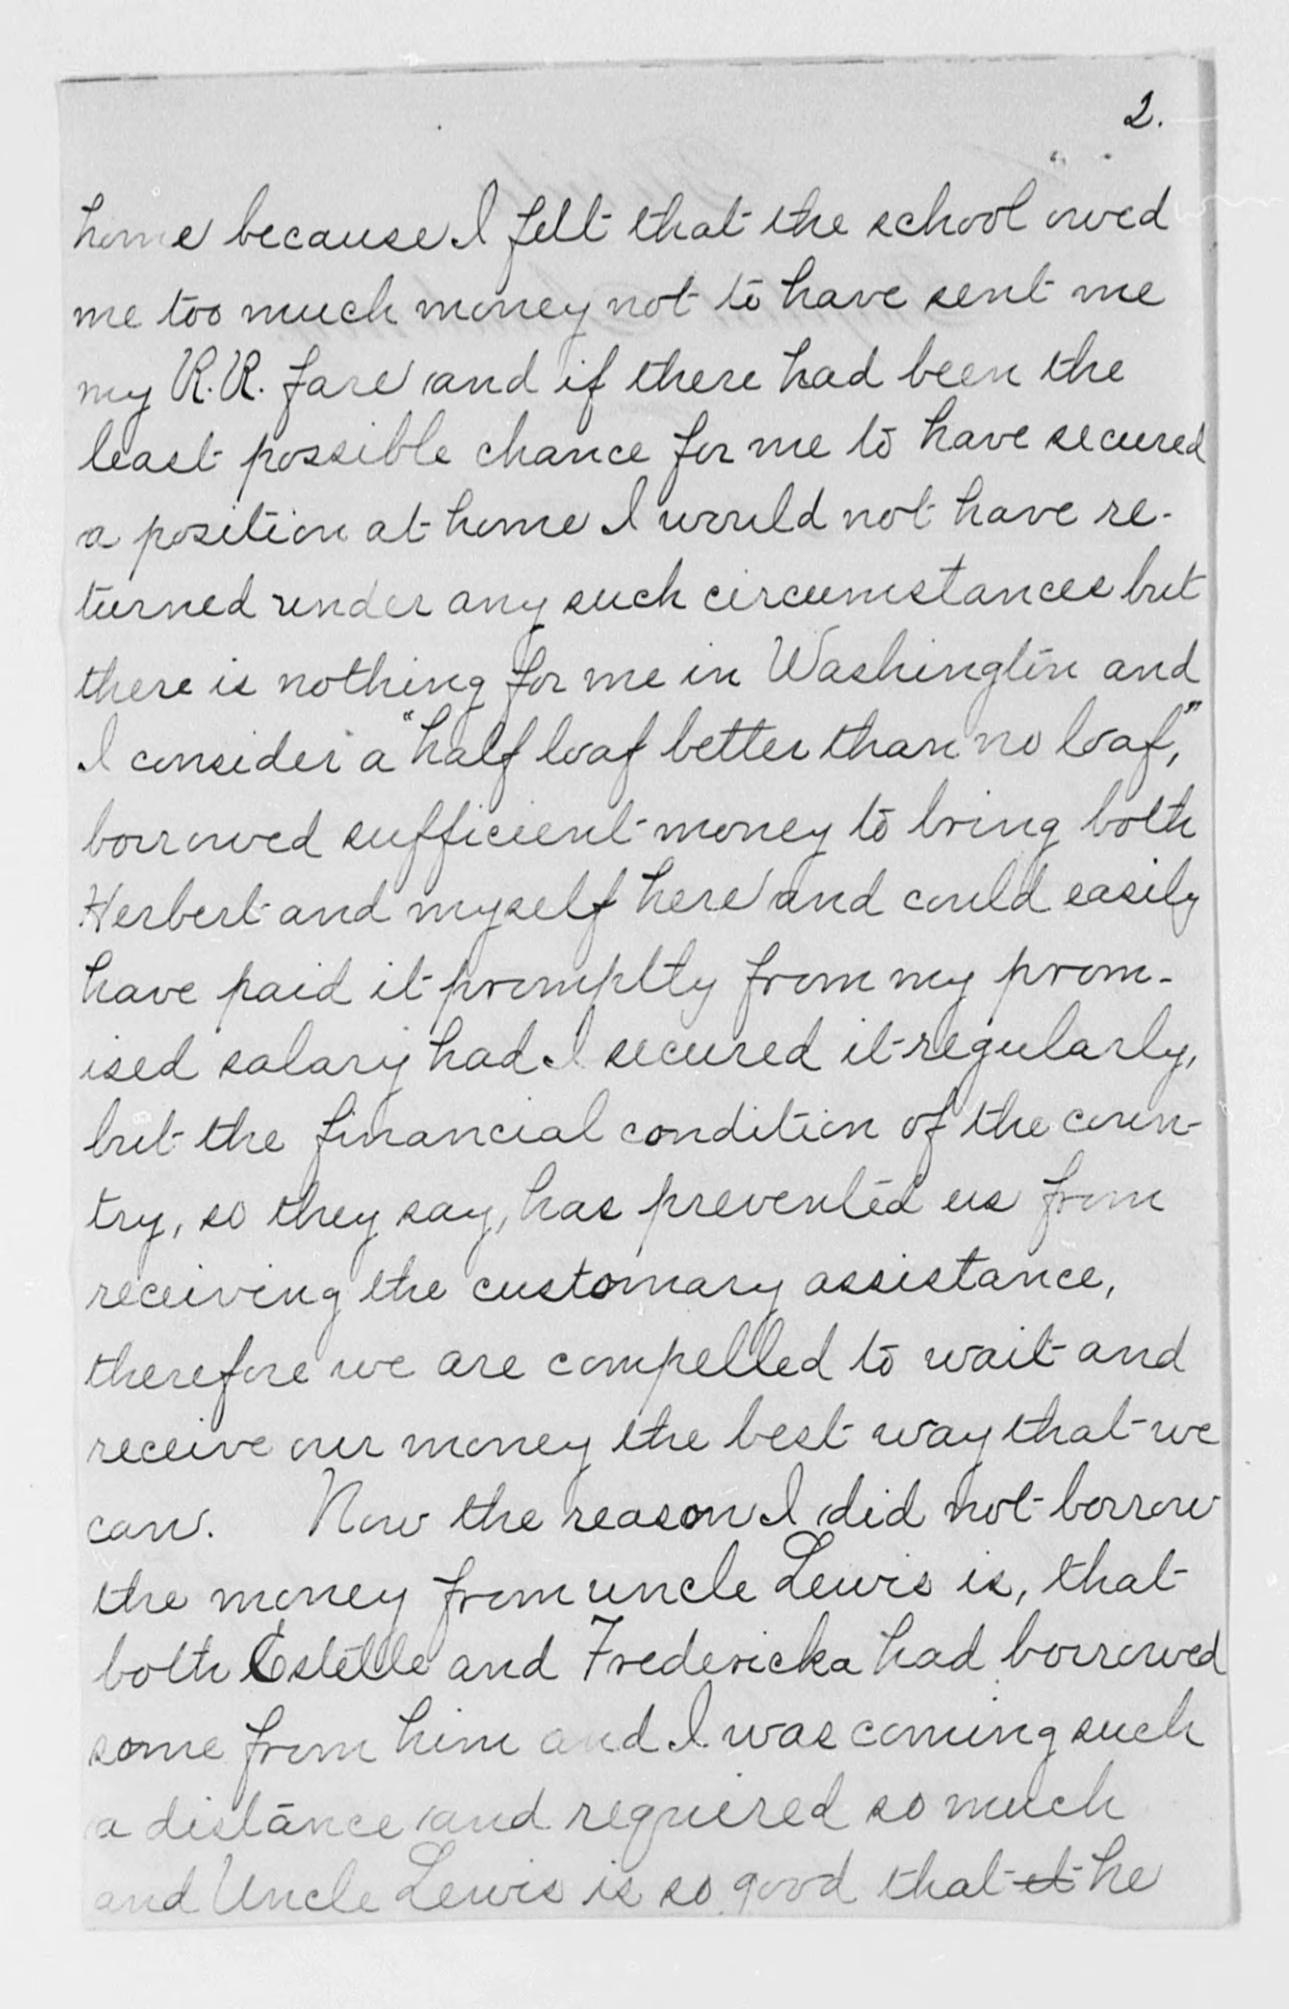 2.
home because I felt that the school owed
me too much money not to have sent me
my R.R. fare and if there had been the
least possible chance for me to have secured
a position at home I would not have re-
turned under any such circumstances but
there is nothing for me in Washington and
I consider a "half loaf better than no loaf,"
borrowed sufficient money to bring both
Herbert and myself here and could easily
have paid it promptly from my prom-
ised salary had I secured it regularly,
but the financial condition of the coun-
try, so they say, has prevented us from
receiving the customary assistance,
therefore we are compelled to wait and
receive our money the best way that we
can. Now the reason I did not borrow
the money from uncle Lewis is, that
both Estelle and Fredericka had borrowed
some from him and I was coming such
a distance and required so much
and Uncle Lewis is so good that it he